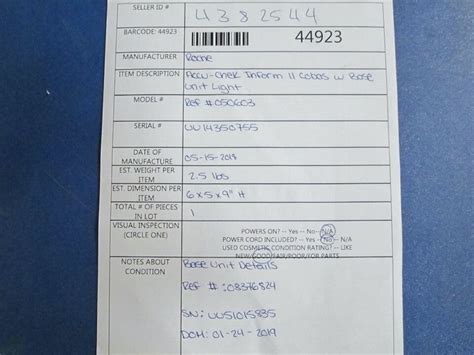 SELLER ID # 4382544
BARCODE: 44923 44923
MANUFACTURER Roche
ITEM DESCRIPTION Accu-Chek Inform II Cobas w Base
Unit Light
MODEL # Ref #050603
SERIAL # UU14350755
DATE OF
MANUFACTURE 05-15-2018
EST. WEIGHT PER
ITEM 2.5 lbs
EST. DIMENSION PER
ITEM 6x5x9" H
TOTAL # OF PIECES
IN LOT 1
VISUAL INSPECTION
(CIRCLE ONE)
POWERS ON? -- Yes -- No -- N/A
POWER CORD INCLUDED? -- Yes -- No -- N/A
USED COSMETIC CONDITION RATING? -- LIKE
NEW/GOOD/FAIR/POOR/FOR PARTS
NOTES ABOUT
CONDITION
Base Unit Details
Ref #: 08376824
SN: UU51015835
DOM: 01-24-2019